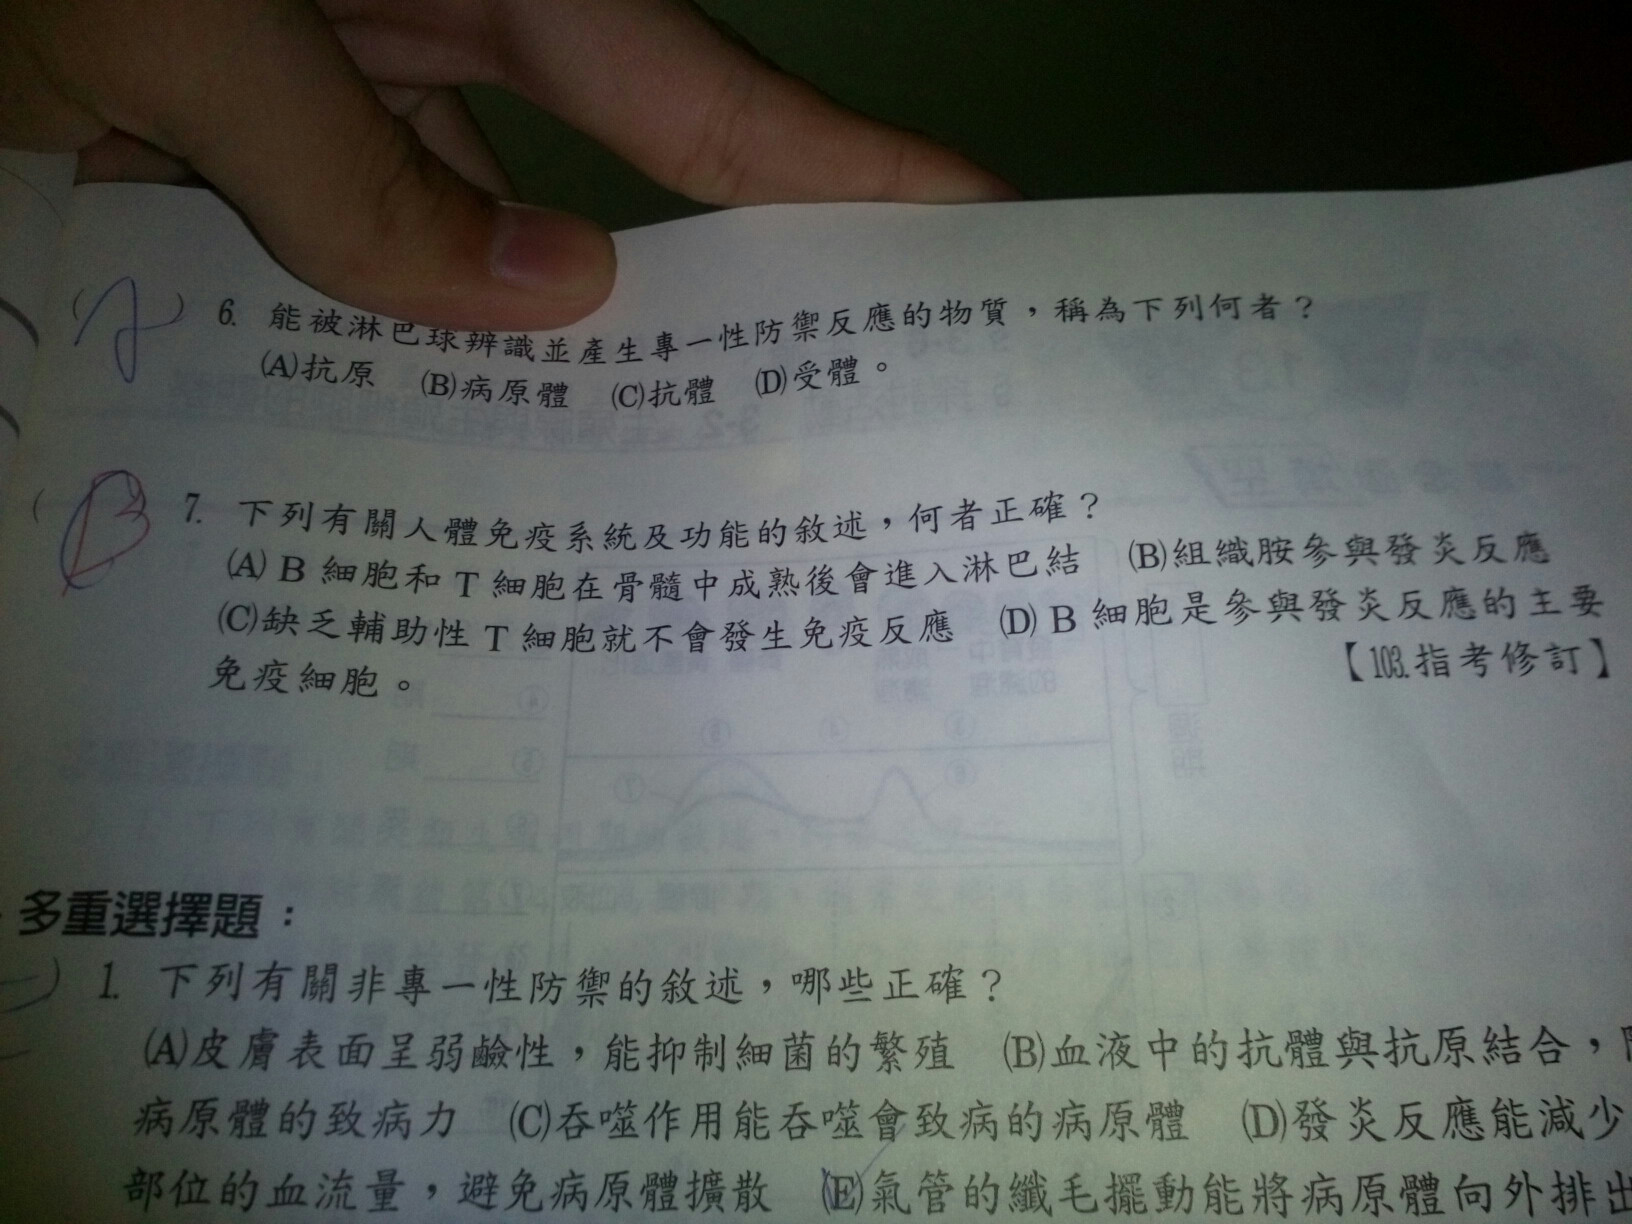 6. 能被淋巴球辨識並產生專一性防禦反應的物質，稱為下列何者？
(A)抗原 (B)病原體 (C)抗體 (D)受體。
B 7. 下列有關人體免疫系統及功能的敘述，何者正確？
(A) B 細胞和 T 細胞在骨髓中成熟後會進入淋巴結 (B)組織胺參與發炎反應
(C)缺乏輔助性 T 細胞就不會發生免疫反應 (D) B 細胞是參與發炎反應的主要
免疫細胞。 【103.指考修訂】
多重選擇題：
1. 下列有關非專一性防禦的敘述，哪些正確？
(A)皮膚表面呈弱鹼性，能抑制細菌的繁殖 (B)血液中的抗體與抗原結合，
病原體的致病力 (C)吞噬作用能吞噬會致病的病原體 (D)發炎反應能減少
部位的血流量，避免病原體擴散 (E)氣管的纖毛擺動能將病原體向外排出